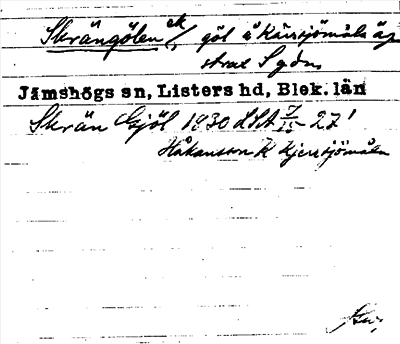 Skrängölen ek/ göl å Kärrsjömåla äg
strax S gdn,
Jämshögs sn, Listers hd, Blek. län
Skrän Gjöl 1930 LSA 7/10 - 27'
Håkansson K Kjerrsjömåla